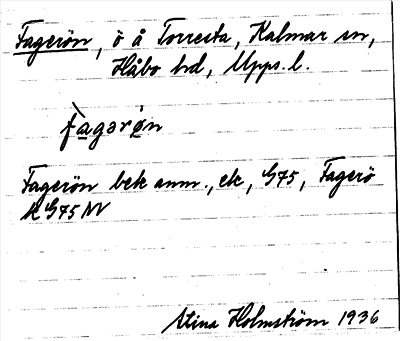 Fagerön, ö å Torresta, Kalmar sn,
Håbo hd, Upps. l.
fàgərö̀n
Fagerön bek anm., ek, G75, Fagerö
k G75 NV
Stina Holmström 1936